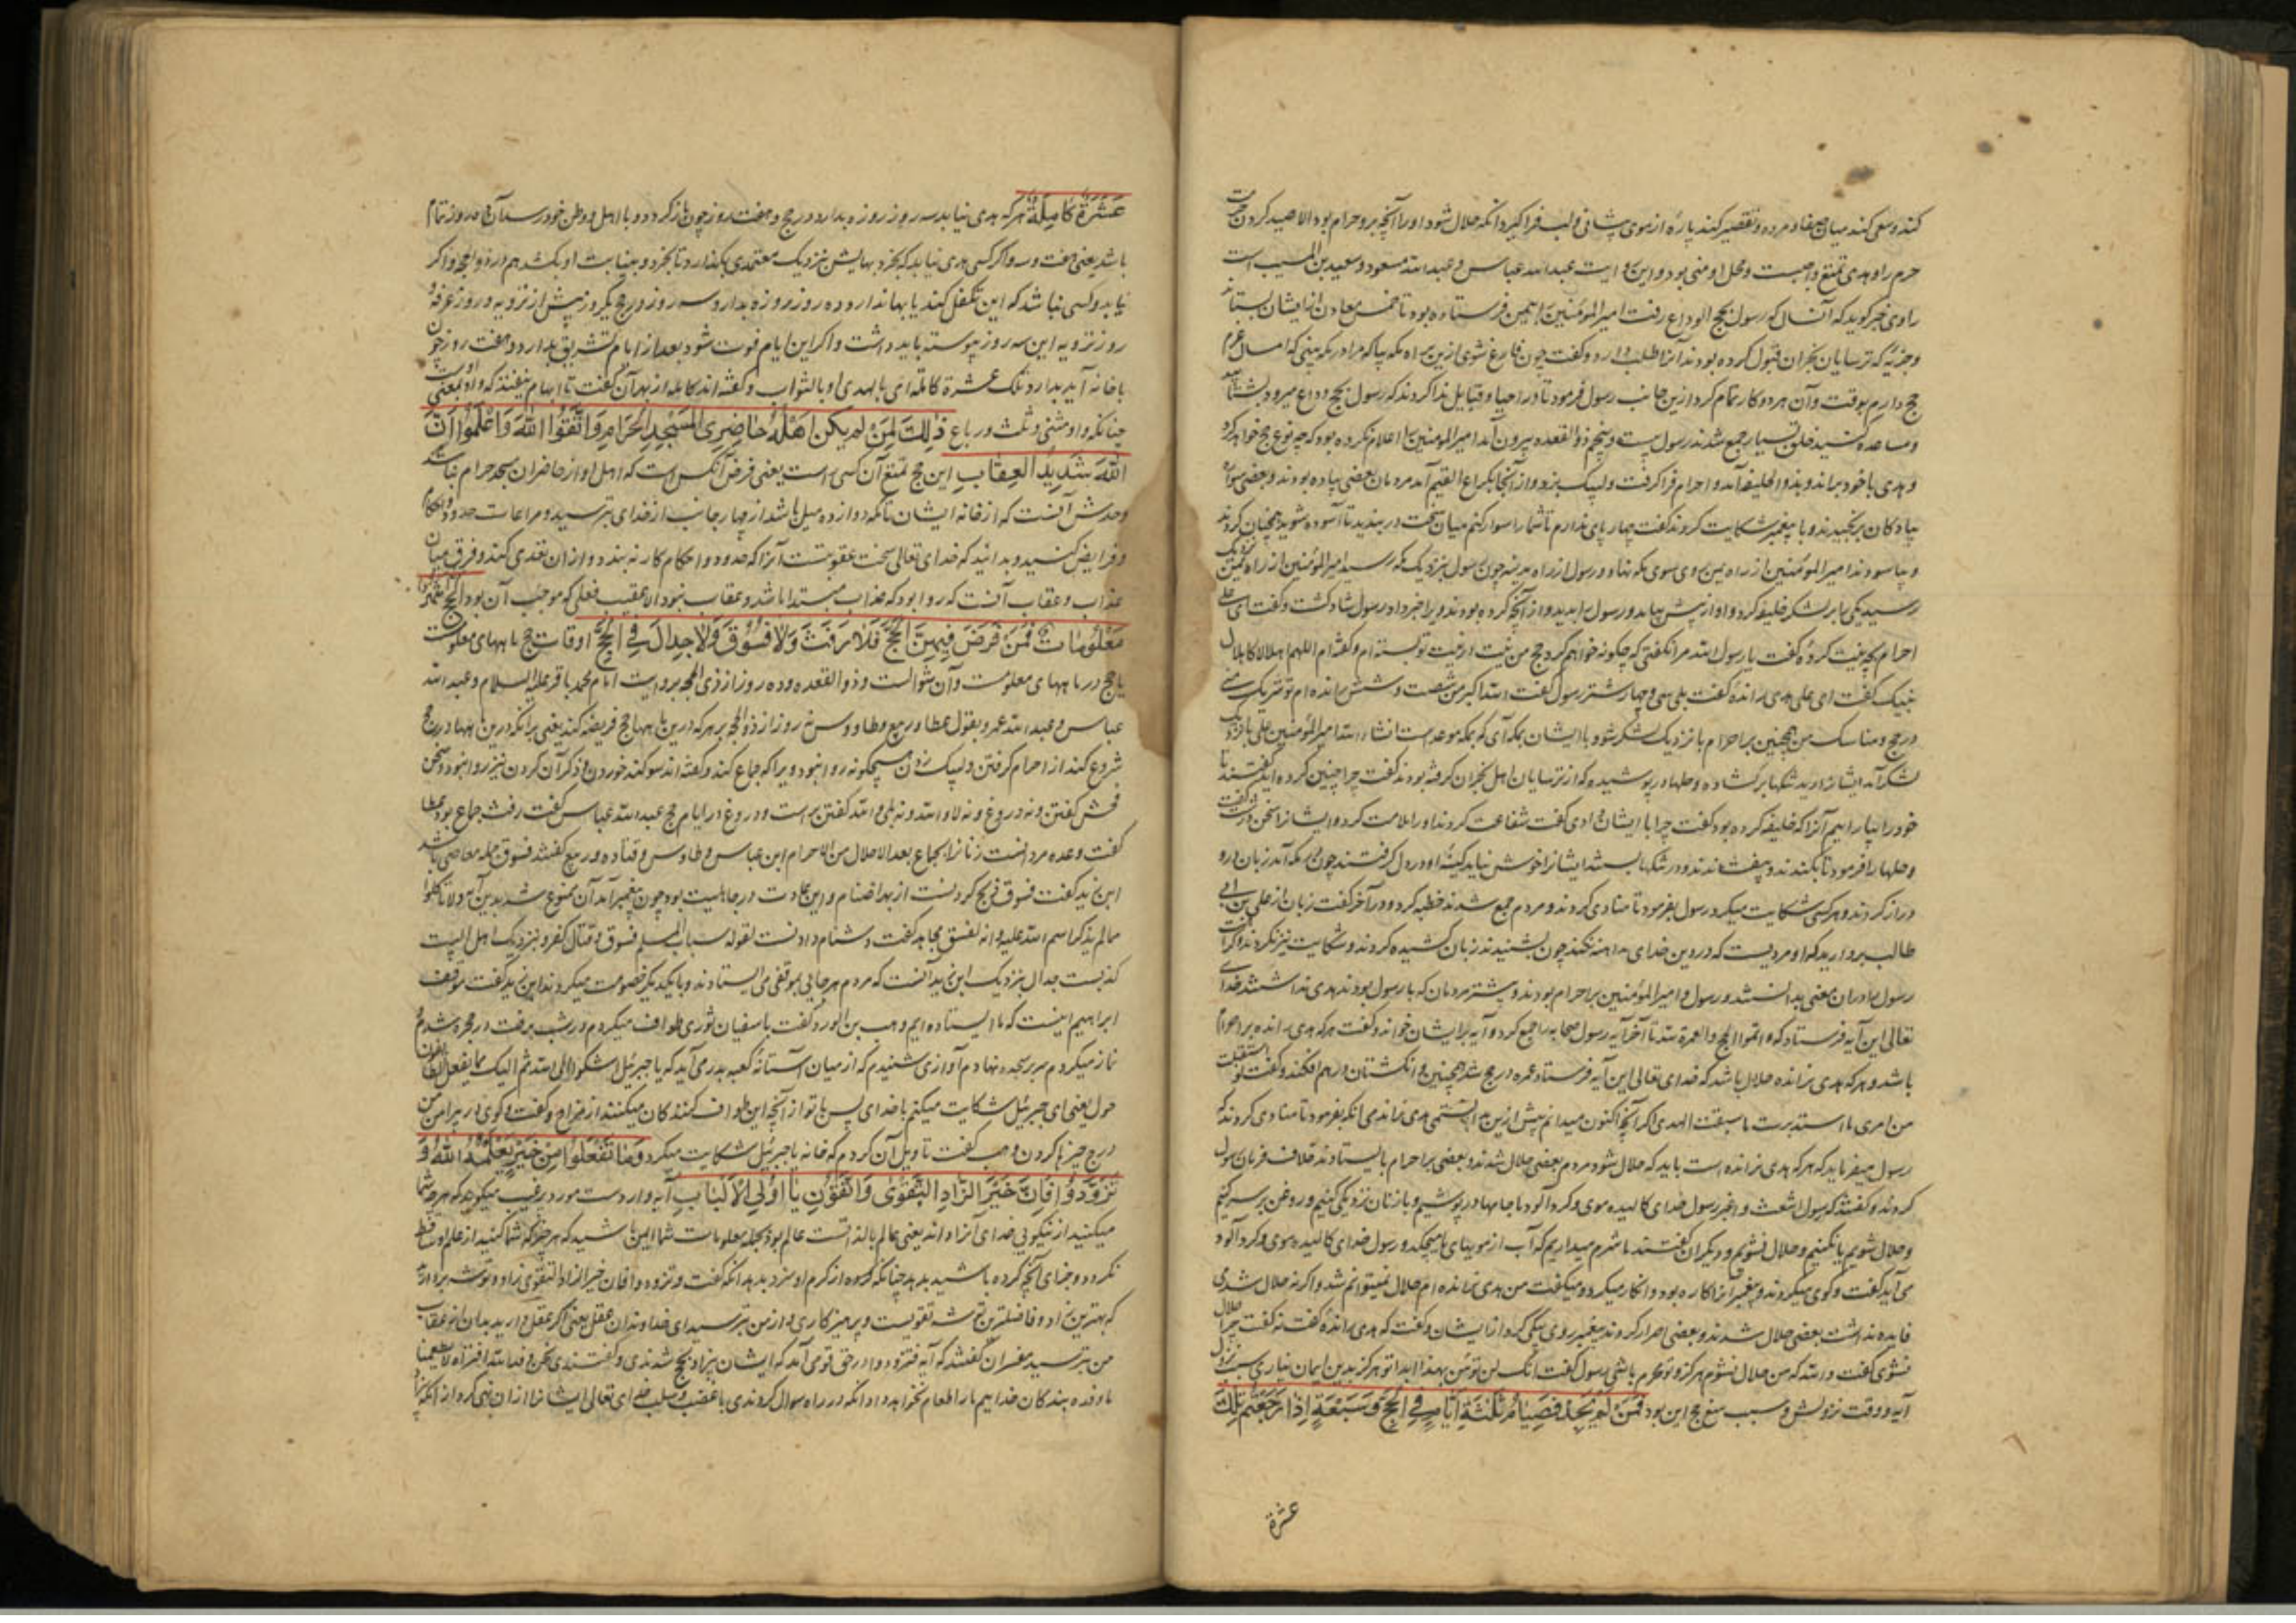 کند و سعی کند میان صفا و مروه و تقصیر کند پاره از موی پیشانی و لب فراگیرد آنکه حلال شود او را آنچه برو حرام بود الا صید کردن حرمت
حرم را و هدی تمتع واجبست و محل او منی بود و این روایت عبدالله عباس و عبدالله مسعود و سعید بن المسیب است
راوی خبر گوید که آنسال که رسول بحج الوداع رفت امیرالمؤمنین را بیمن فرستاده بود تا خمس معادن از ایشان بستاند
و جزیهٔ که ترسایان نجران قبول کرده بودند از ایشان طلب دارد و گفت چون فارغ شوی ازین راه مکه بیا که مرا در مکه بینی که امسال عزم
حج دارم بوقت و آن هر دو کار تمام کرد ازین جانب رسول فرمود تا در احیا و قبایل ندا کردند که رسول بحج وداع میرود بشتابید
و مساعده کنید خلق بسیار جمع شدند رسول بیست و پنجم ذوالقعده بیرون آمد امیرالمومنین را اعلام نکرده بود که چه نوع حج خواهد کرد
و هدی با خود براند و بذوالحلیفه آمد و احرام فرا گرفت و لبیک بزد و از آنجا بکراع الغمیم آمد مردمان بعضی پیاده بودند و بعضی سواره
پیادگان برنجیدند و با پیغمبر شکایت کردند گفت چهارپای ندارم تا شما را سوار کنم میان سخت در بندید تا آسوده شوید همچنان کردند
و بیاسودند امیرالمؤمنین از راه یمن روی سوی مکه نهاد و رسول از راه مدینه چون رسول بنزدیک مکه رسید امیرالمؤمنین از راه یمن نزدیک
رسید یکی را بر لشکر خلیفه کرد و او از پیش بیامد و رسول را بدید و از آنچه کرده بود ویرا خبر داد رسول شاد گشت و گفت ای علی
احرام بچه نیت کردهٔ گفت یا رسول الله مرا نگفتی که چگونه خواهم کرد حج من نیت از نیت تو بسته ام و گفته ام اللهم اهلالا کاهلال
نبیک گفت ای علی هدی راندهٔ گفت بلی سی و چهار شتر رسول گفت الله اکبر من شصت و شش رانده ام تو شریک منی
در حج و مناسک من همچنین بر احرام با نزدیک لشکر شو و با ایشان بمکه آی که بمکه موعدست انشاءالله امیرالمؤمنین علی با نزدیک
لشکر آمد ایشانرا دید تنگها بر گشاده و حلها در پوشیده که از ترسایان اهل نجران گرفته بودند گفت چرا چنین کرده اید گفتند تا
خود را بیاراییم آنرا که خلیفه کرده بود گفت چرا با ایشان دادی گفت شفاعت کردند او را ملامت کرد و ایشانرا سخن درشت گفت
و حلها را فرمود تا بکندند و بیفشاندند و در تنگها بستند ایشانرا خوش نیامد کینهٔ او در دل گرفتند چون بمکه آمدند زبان درو
دراز کردند و هر کسی شکایت میکرد رسول بفرمود تا منادی کردند و مردم جمع شدند خطبه کرد و در آخر گفت زبان از علی بن ابی
طالب بردارید که او مردیست که در دین خدای مداهنه نکند چون بشنیدند زبان کشیده کردند و شکایت نیز نکردند
رسول را در آن معنی بدانستند و رسول و امیرالمؤمنین بر احرام بودند و بیشتر مردمان که با رسول بودند هدی نداشتند خدای
تعالی این آیه فرستاد که و اتموا الحج و العمرة لله تا آخر آیه رسول صحابه را جمع کرد و آیه بر ایشان خواند و گفت هر که هدی رانده بر احرام
باشد و هر که هدی نرانده حلال باشد که خدای تعالی این آیه فرستاد عمره در حج شد همچنین و انگشتان در هم افکند و گفت لو استقبلت
من امری ما استدبرت ما سقت الهدی اگر آنچه اکنون میدانم پیش ازین دانستمی هدی نراندمی آنکه بفرمود تا منادی کردند که
رسول میفرماید که هر که هدی نرانده است باید که حلال شود مردم بعضی حلال شدند و بعضی بر احرام بایستادند خلاف فرمان رسول
کردند و گفتند که رسول اشعث و اغبر رسول خدای کالیده موی و گردآلود ما جامها در پوشیم و با زنان نزدیکی کنیم و روغن بر سر کنیم
و حلال شویم یا نکنیم و حلال نشویم و دیگران گفتند ما شرم میداریم که آب از مویهای ما میچکد و رسول خدای کالیده موی و گردآلود
می آید گفت و گوی میکردند و پیغمبر آنرا کاره بود و انکار میکرد و میگفت من هدی رانده ام حلال نمیتوانم شد و اگرنه حلال شدمی
فایده نداشت بعضی حلال شدند و بعضی اصرار کردند پیغمبر روی بیکی کرد از ایشان و گفت که هدی راندهٔ گفت نه گفت چرا حلال
نشوی گفت والله که من حلال نشوم هرگز و تو محرم باشی رسول گفت انک لن تؤمن بهذا ابدا تو هرگز بدین ایمان نیاری سبب نزول
آیه و وقت نزولش و سبب منع حج این بود فَمَنْ لَمْ یَجِدْ فَصِیَامُ ثَلٰثَةِ اَیَّامٍ فِی الْحَجِّ وَسَبْعَةٍ اِذَا رَجَعْتُمْ تِلْكَ
عشرة
عَشَرَةٌ كَامِلَةٌ هر که هدی نیابد سه روز روزه بدارد در حج و هفت روز چون باز گردد و با اهل و وطن خود رسد آن ده روز تمام
باشد یعنی هفت و سه و اگر کسی هدی نیابد که بخرد بهایش نزدیک معتمدی بگذارد تا بخرد و بنیابت او بکشد هم در ذوالحجه و اگر
نیابد و کسی نباشد که این تکفل کند یا بها ندارد ده روز روزه بدارد سه روز در حج یکروز پیش از ترویه و روز عرفهٔ
روز ترویه این سه روز پیوسته باید داشت و اگر این ایام فوت شود بعد از ایام تشریق بدارد و هفت روز چون
با خانه آید بدارد تلک عشرة کاملة ای بالهدی او بالثواب و گفته اند کامله از بهر آن گفت تا ایهام نیفتد که واو بمعنی او است
چنانکه واو مثنی و ثلث و رباع ذٰلِكَ لِمَنْ لَمْ یَكُنْ اَهْلُهُ حَاضِرِی الْمَسْجِدِ الْحَرَامِ وَاتَّقُوا اللّٰهَ وَاعْلَمُوا اَنَّ
اللّٰهَ شَدِیدُ الْعِقَابِ این حج تمتع آن کسی است یعنی فرض آنکس است که اهل او از حاضران مسجد حرام نباشد
و حدش آنست که از خانه ایشان تا مکه دوازده میل باشد از چهار جانب از خدای بترسید و مراعات حدود و احکام
و فرایض کنید و بدانید که خدای تعالی سخت عقوبتست آنرا که حدود و احکام کار نه بندد و از ان تعدی کند و فرق میان
عذاب و عقاب آنست که روا بود که عذاب مبتدا باشد و عقاب نبود الا عقیب فعلی که موجب آن بود اَلْحَجُّ اَشْهُرٌ
مَعْلُومَاتٌ فَمَنْ فَرَضَ فِیهِنَّ الْحَجَّ فَلَا رَفَثَ وَلَا فُسُوقَ وَلَا جِدَالَ فِی الْحَجِّ اوقات حج ماههای معلومست
یا حج در ماههای معلومست و آن شوالست و ذوالقعده و ده روز از ذی الحجه بروایت امام محمد باقر علیه السلام و عبدالله
عباس و عبدالله عمر و بقول عطا و ربیع و طاووس نه روز از ذوالحجه بر هر که درین ماهها حج فریضه کند یعنی برانکه درین ماهها در حج
شروع کند از احرام گرفتن و لبیک زدن هیچگونه روا نبود ویرا که جماع کند و گفته اند سوگند خوردن و ذکر آن کردن نیز روا نبود و سخن
فحش گفتن و نه دروغ و نه لا والله و نه بلی والله گفتن و دروغ در ایام حج عبدالله عباس گفت رفث جماع بود عطا
گفت وعده مردانست زنانرا بجماع بعد الاحلال من الاحرام ابن عباس و طاوس و قتاده و ربیع گفتند فسوق جمله معاصی باشد
ابن زید گفت فسوق ذبح کردنست از بهر اصنام و این عادت در جاهلیت بود چون پیغمبر آمد آن ممنوع شد بدین آیه ولا تاکلوا
مما لم یذکر اسم الله علیه و انه لفسق مجاهد گفت دشنام دادنست لقوله سباب المسلم فسوق و قتاله کفر و بنزدیک اهل البیت
کذبست جدال بنزدیک ابن زید آنست که مردم هر جایی بموقفی می ایستادند و با یکدیگر خصومت میکردند این زید گفت موقف
ابراهیم اینست که ما ایستاده ایم وهب بن الورد گفت با سفیان ثوری طواف میکردم در شب برفت در حجره شدم
نماز میکردم سر بر سجده نهادم آوازی شنیدم که از میان آستانهٔ کعبه بدر می آید که یا جبرئیل اشکوا الی الله ثم الیک مما یفعل الطائفون
حول یعنی ای جبرئیل شکایت میکنم با خدای پس با تو از آنچه این طواف کنندگان میکنند از مزاح و گفت و گوی در پیرامن من
درج چیزها کردن وهب گفت تاویل آن کردم که خانه با جبرئیل شکایت میکرد وَمَا تَفْعَلُوا مِنْ خَیْرٍ یَعْلَمْهُ اللّٰهُ وَ
تَزَوَّدُوا فَاِنَّ خَیْرَ الزَّادِ التَّقْوٰی وَاتَّقُونِ یَا اُولِی الْاَلْبَابِ آیه وارد است مورد ترغیب میگوید که هر چه شما
میکنید از نیکویی خدای آنرا داند یعنی عالم بالذاتست عالم بود بجمله معلومات شما ایمن باشید که هر چه که شما کنید از علم او ساقط
نگردد و جزای آنچه کرده باشید بدهد چنانکه از کرم او سزد بدهد آنکه گفت و تزودوا فان خیر الزاد التقوی زاد و توشه بردارید
که بهترین زاد و فاضلترین توشه تقویست و پرهیزکاری و از من بترسید ای خداوندان عقل یعنی اگر عقل دارید بدان از عقاب
من بترسید مفسران گفتند که آیه فتزودوا در حق قومی آمد که ایشان بی زاد بحج شدندی و گفتندی نحن وفد الله افتراه لا یطعمنا
ما وفده بندگان خداییم ما را طعام نخواهد داد آنکه در راه سوال کردندی یا غصب و سلب خدای تعالی ایشانرا از ان نهی کرد